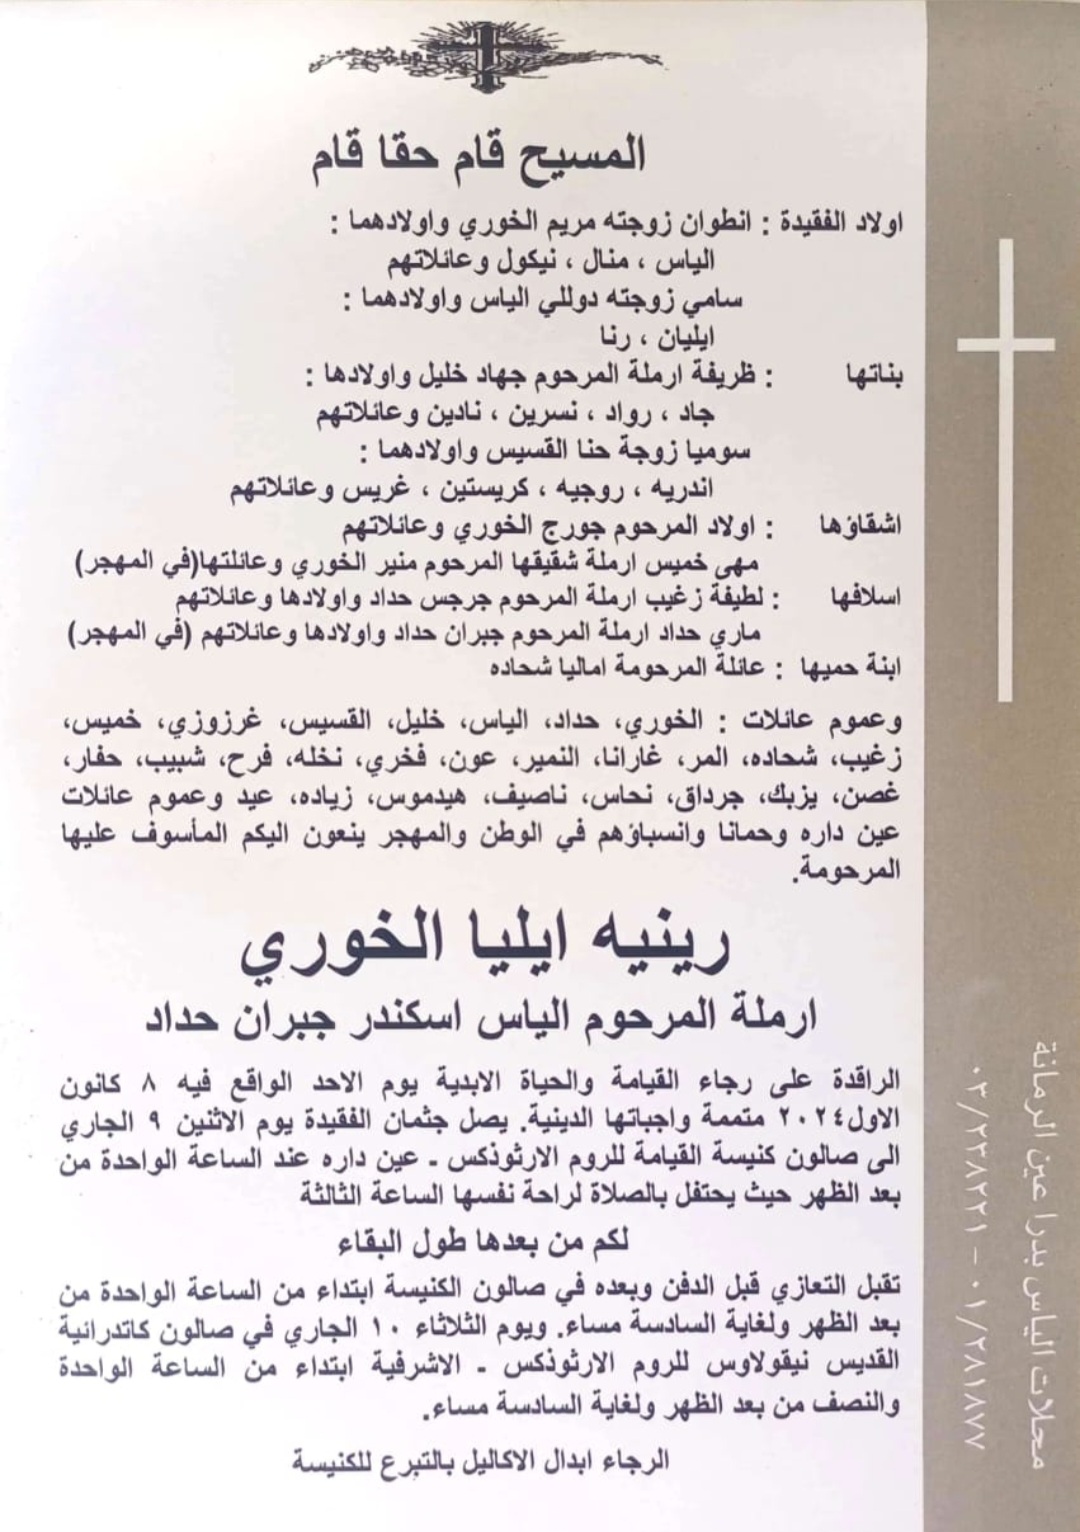 المسيح قام حقا قام
اولاد الفقيدة : انطوان زوجته مريم الخوري واولادهما :
الياس ، منال ، نيكول وعائلاتهم
سامي زوجته دوللي الياس واولادهما :
ايليان ، رنا
بناتها : ظريفة ارملة المرحوم جهاد خليل واولادها :
جاد ، رواد ، نسرين ، نادين وعائلاتهم
سوميا زوجة حنا القسيس واولادهما :
اندريه ، روجيه ، كريستين ، غريس وعائلاتهم
اشقاؤها : اولاد المرحوم جورج الخوري وعائلاتهم
مهى خميس ارملة شقيقها المرحوم منير الخوري وعائلتها(في المهجر)
اسلافها : لطيفة زغيب ارملة المرحوم جرجس حداد واولادها وعائلاتهم
ماري حداد ارملة المرحوم جبران حداد واولادها وعائلاتهم (في المهجر)
ابنة حميها : عائلة المرحومة اماليا شحاده
وعموم عائلات : الخوري، حداد، الياس، خليل، القسيس، غرزوزي، خميس،
زغيب، شحاده، المر، غارانا، النمير، عون، فخري، نخله، فرح، شبيب، حفار،
غصن، يزبك، جرداق، نحاس، ناصيف، هيدموس، زياده، عيد وعموم عائلات
عين داره وحمانا وانسباؤهم في الوطن والمهجر ينعون اليكم المأسوف عليها
المرحومة.
رينيه ايليا الخوري
ارملة المرحوم الياس اسكندر جبران حداد
الراقدة على رجاء القيامة والحياة الابدية يوم الاحد الواقع فيه ٨ كانون
الاول٢٠٢٤ متممة واجباتها الدينية. يصل جثمان الفقيدة يوم الاثنين ٩ الجاري
الى صالون كنيسة القيامة للروم الارثوذكس - عين داره عند الساعة الواحدة من
بعد الظهر حيث يحتفل بالصلاة لراحة نفسها الساعة الثالثة
لكم من بعدها طول البقاء
تقبل التعازي قبل الدفن وبعده في صالون الكنيسة ابتداء من الساعة الواحدة من
بعد الظهر ولغاية السادسة مساء. ويوم الثلاثاء ١٠ الجاري في صالون كاتدرائية
القديس نيقولاوس للروم الارثوذكس - الاشرفية ابتداء من الساعة الواحدة
والنصف من بعد الظهر ولغاية السادسة مساء.
الرجاء ابدال الاكاليل بالتبرع للكنيسة
محلات الياس بدرا عين الرمانة
٠٣/٢٣٨٢٢١ - ٠١/٢٨١٨٧٧